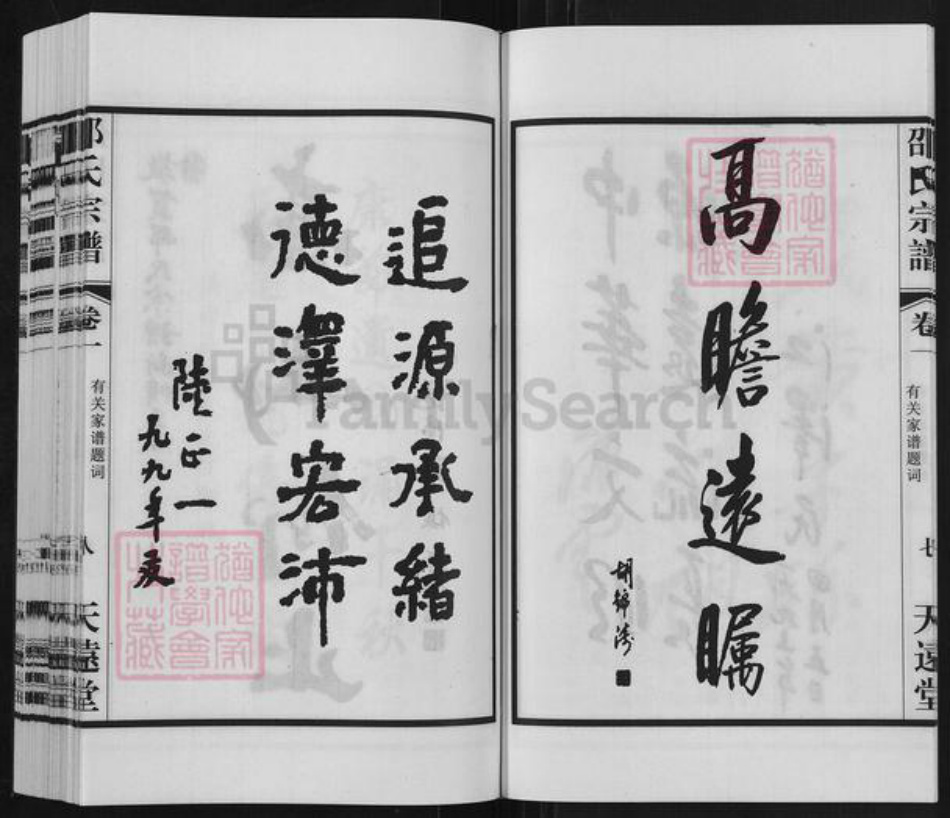 邵氏宗譜
卷一
有关家谱题词
七
天遠堂
高瞻遠瞩
胡錦濤
追源承緒
德澤宏沛
陸正一
九九年夏
邵氏宗譜
卷一
有关家谱题词
八
天遠堂
FamilySearch